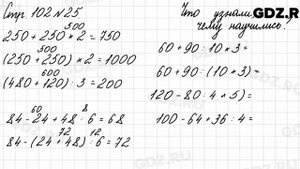 Стр 102 №25
500
250 + 250 * 2 = 750
500
(250 + 250) * 2 = 1000
600
(480 + 120) : 3 = 200
60 8
84 - 24 + 48 : 6 = 68
72 12
84 - (24 + 48) : 6 = 72
Что узнали,
чему научились?
60 + 90 : 10 * 3 =
60 + 90 : (10 * 3) =
120 - 80 : 4 * 5) =
100 - 64 + 36 : 4 =
GDZ.RU